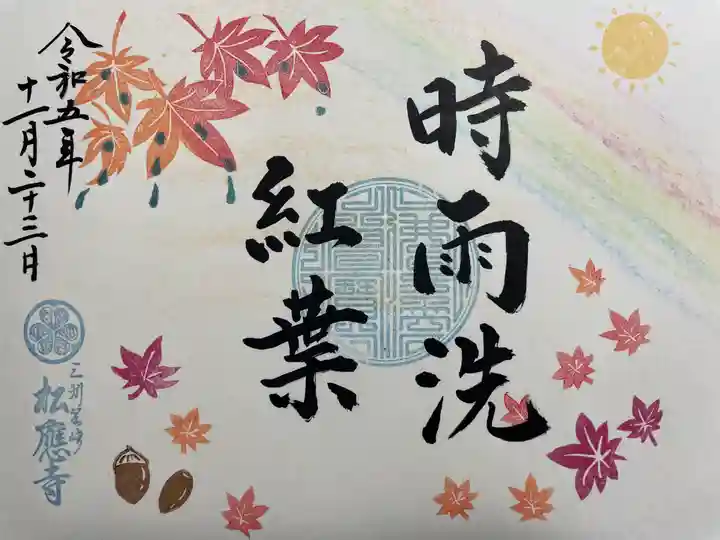 時雨洗
紅葉
令和五年
十一月二十三日
三州岡崎
松應寺